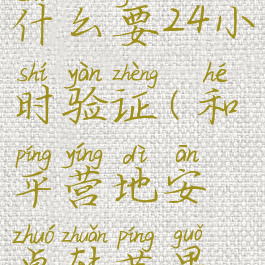 什么要24小
shí yàn zhèng hé
时验证(和
píng yíng dì ān
平营地安
zhuó zhuǎn píng guǒ
卓转苹果